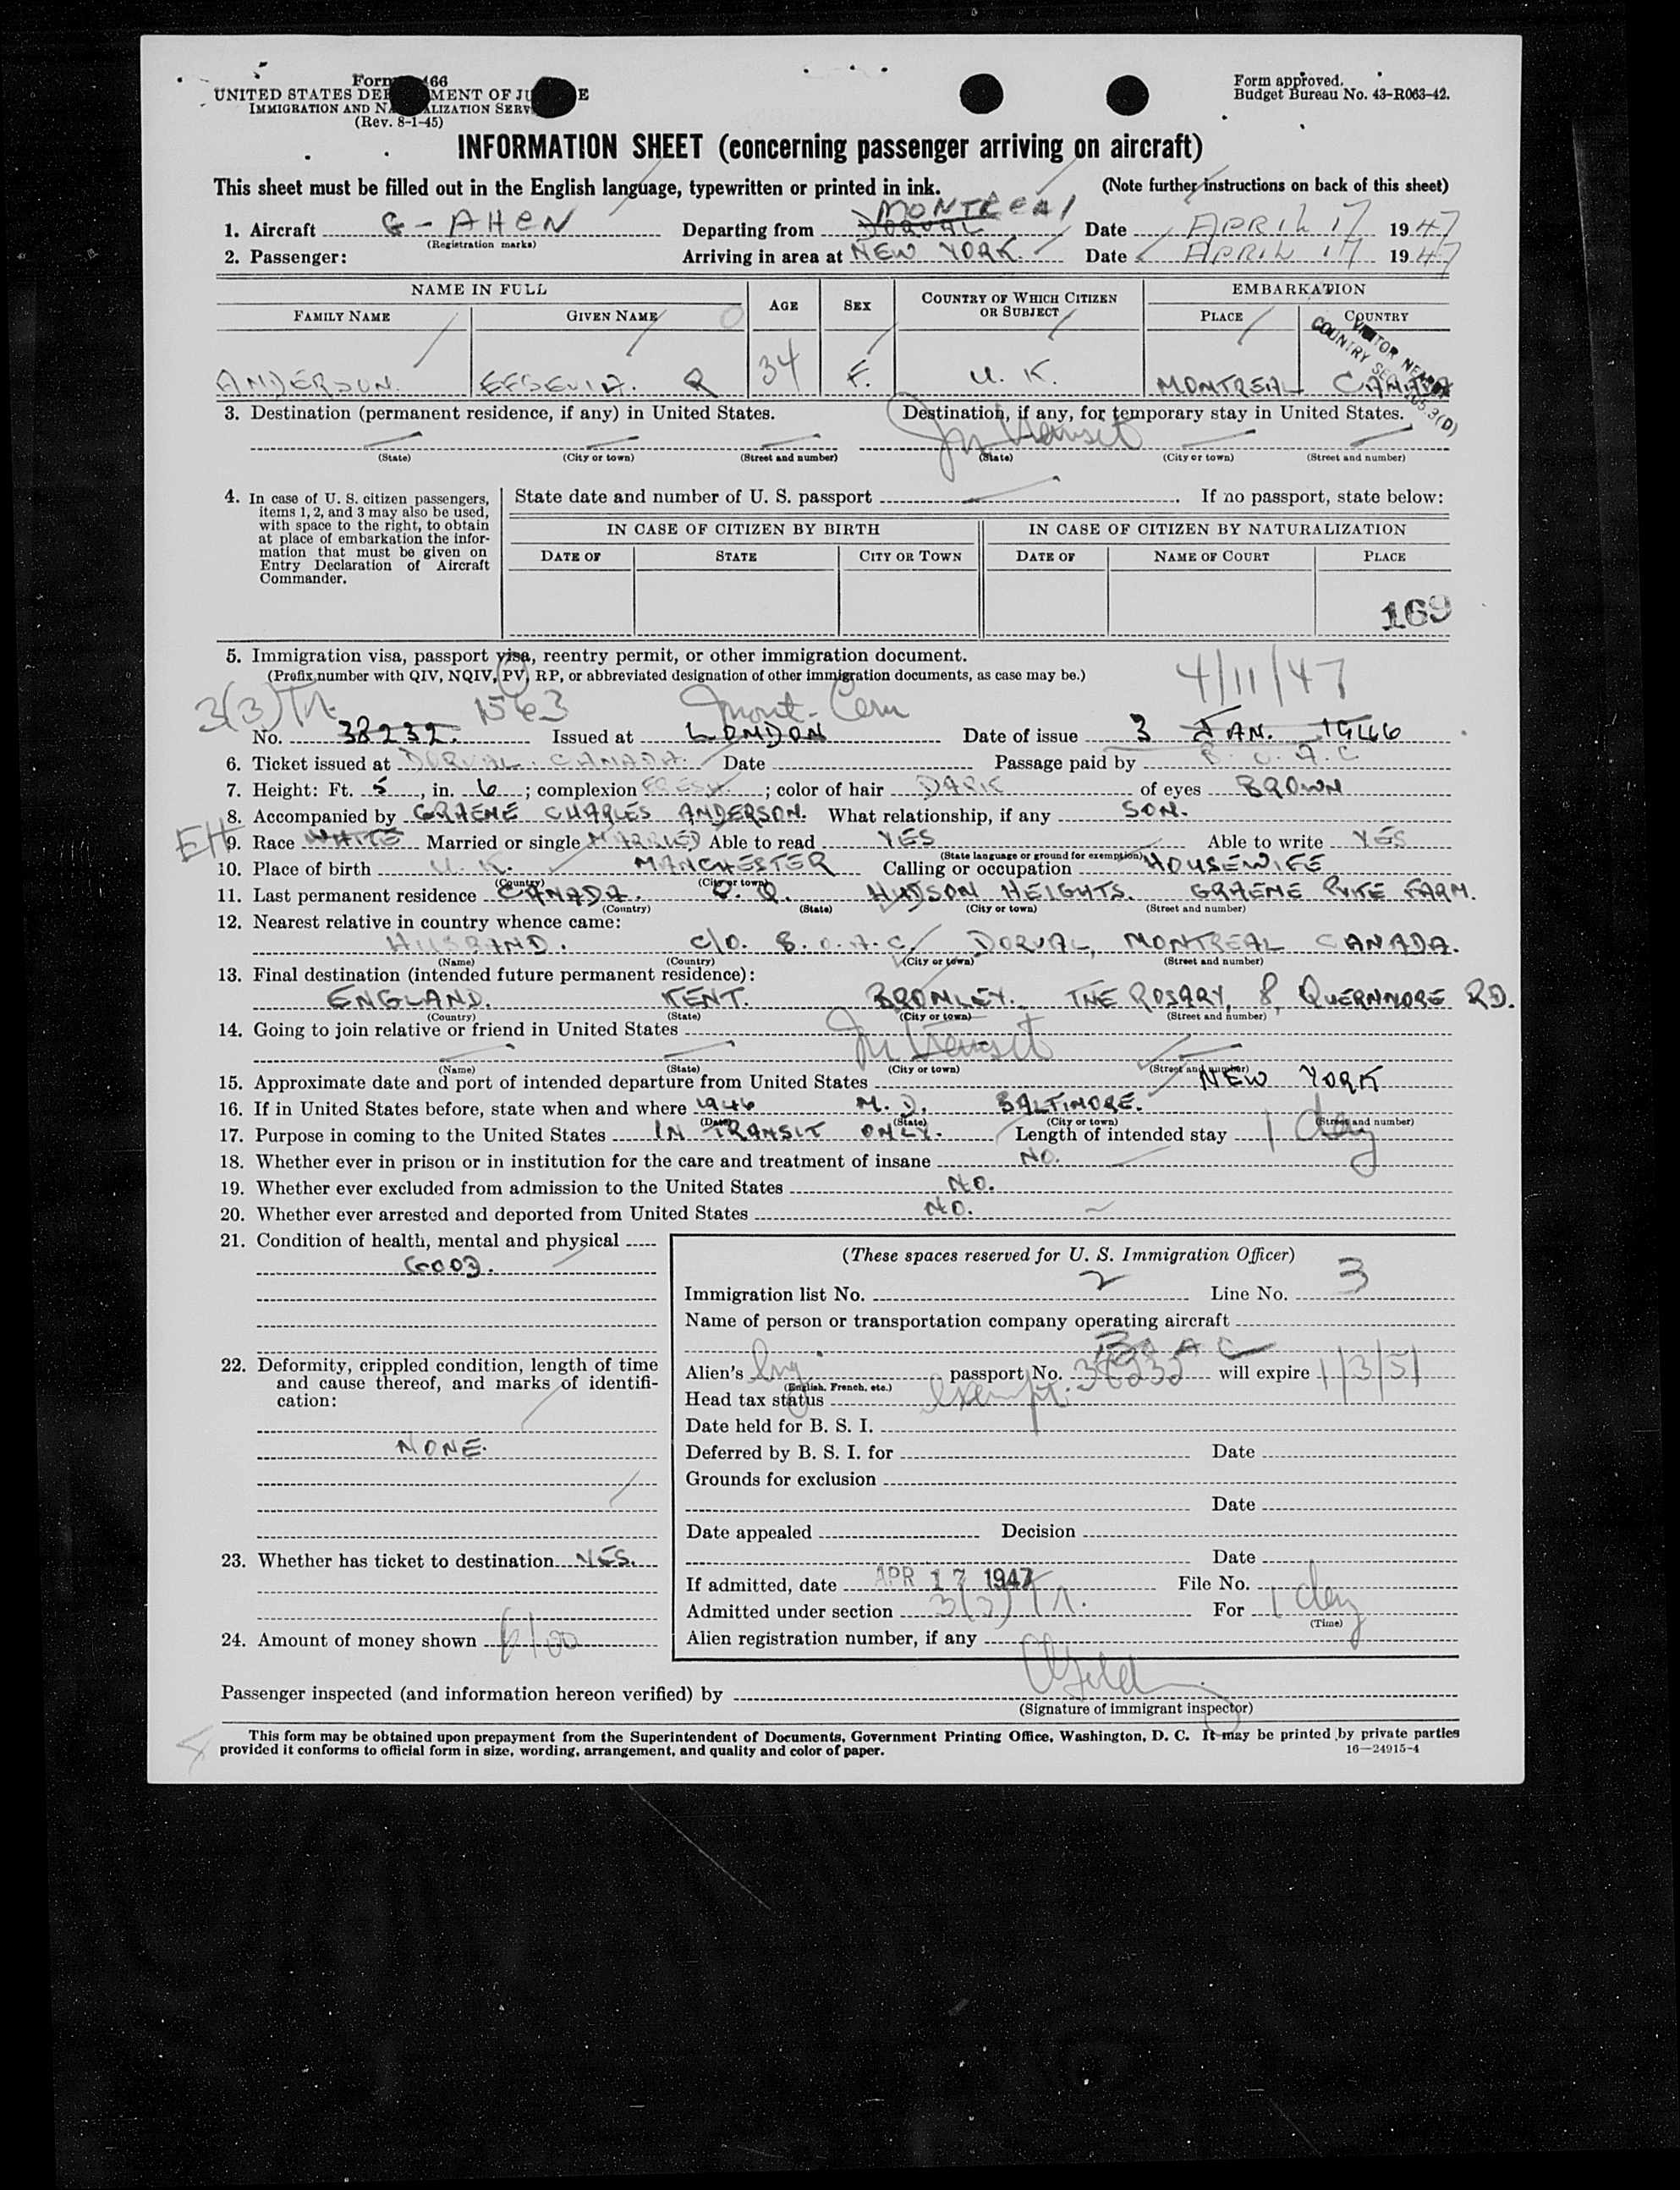 Form 466
UNITED STATES DEPARTMENT OF JUSTICE
IMMIGRATION AND NATURALIZATION SERVICE
(Rev. 8-1-45)
Form approved.
Budget Bureau No. 43-R063-42.
INFORMATION SHEET (concerning passenger arriving on aircraft)
This sheet must be filled out in the English language, typewritten or printed in ink. (Note further instructions on back of this sheet)
MONTREAL
1. Aircraft G-AHEN Departing from DORVAL Date APRIL 17 1947
(Registration marks)
2. Passenger: Arriving in area at NEW YORK. Date APRIL 17 1947
NAME IN FULL AGE SEX COUNTRY OF WHICH CITIZEN OR SUBJECT EMBARKATION
FAMILY NAME GIVEN NAME PLACE COUNTRY
VISITOR NEARBY
COUNTRY SEC 165.3(D)
ANDERSON. R 34 F. U. K. MONTREAL CANADA
3. Destination (permanent residence, if any) in United States. Destination, if any, for temporary stay in United States.
In transit
(State) (City or town) (Street and number) (State) (City or town) (Street and number)
4. In case of U. S. citizen passengers, items 1, 2, and 3 may also be used, with space to the right, to obtain at place of embarkation the information that must be given on Entry Declaration of Aircraft Commander.
State date and number of U. S. passport . If no passport, state below:
IN CASE OF CITIZEN BY BIRTH IN CASE OF CITIZEN BY NATURALIZATION
DATE OF STATE CITY OR TOWN DATE OF NAME OF COURT PLACE
169
5. Immigration visa, passport visa, reentry permit, or other immigration document.
(Prefix number with QIV, NQIV, PV, RP, or abbreviated designation of other immigration documents, as case may be.)
3(3) Tr. 1563 Mont-Can 4/11/47
No. 38232. Issued at LONDON Date of issue 3 JAN. 1946
6. Ticket issued at DORVAL. CANADA. Date Passage paid by B.O.A.C
7. Height: Ft. 5, in. 6; complexion FRESH; color of hair DARK of eyes BROWN
8. Accompanied by GRAEME CHARLES ANDERSON. What relationship, if any SON.
EH
9. Race WHITE Married or single MARRIED Able to read YES Able to write YES
(State language or ground for exemption)
10. Place of birth U. K. MANCHESTER Calling or occupation HOUSEWIFE
(Country) (City or town)
11. Last permanent residence CANADA. P. Q. HUDSON HEIGHTS. GRAEME PYKE FARM.
(Country) (State) (City or town) (Street and number)
12. Nearest relative in country whence came:
HUSBAND. c/o. B.O.A.C. DORVAL, MONTREAL CANADA.
(Name) (Country) (City or town) (Street and number)
13. Final destination (intended future permanent residence):
ENGLAND. KENT. BROMLEY. THE ROSARY, 8, QUERNMORE RD.
(Country) (State) (City or town) (Street and number)
14. Going to join relative or friend in United States In transit
(Name) (State) (City or town) (Street and number)
15. Approximate date and port of intended departure from United States NEW YORK
16. If in United States before, state when and where 1946 M. D. BALTIMORE.
(Date) (State) (City or town) (Street and number)
17. Purpose in coming to the United States IN TRANSIT ONLY. Length of intended stay 1 day
18. Whether ever in prison or in institution for the care and treatment of insane NO.
19. Whether ever excluded from admission to the United States NO.
20. Whether ever arrested and deported from United States NO.
21. Condition of health, mental and physical
GOOD.
22. Deformity, crippled condition, length of time and cause thereof, and marks of identification:
NONE.
23. Whether has ticket to destination YES.
24. Amount of money shown
(These spaces reserved for U. S. Immigration Officer)
Immigration list No. 2 Line No. 3
Name of person or transportation company operating aircraft
BOAC
Alien's Eng. passport No. 38232 will expire 1/3/51
(English, French, etc.)
Head tax status exempt
Date held for B. S. I.
Deferred by B. S. I. for Date
Grounds for exclusion
Date
Date appealed Decision
Date
If admitted, date APR 17 1947 File No.
Admitted under section 3(3) Tr. For 1 day
(Time)
Alien registration number, if any
Passenger inspected (and information hereon verified) by
(Signature of immigrant inspector)
This form may be obtained upon prepayment from the Superintendent of Documents, Government Printing Office, Washington, D. C. It may be printed by private parties
provided it conforms to official form in size, wording, arrangement, and quality and color of paper. 16—24915-4